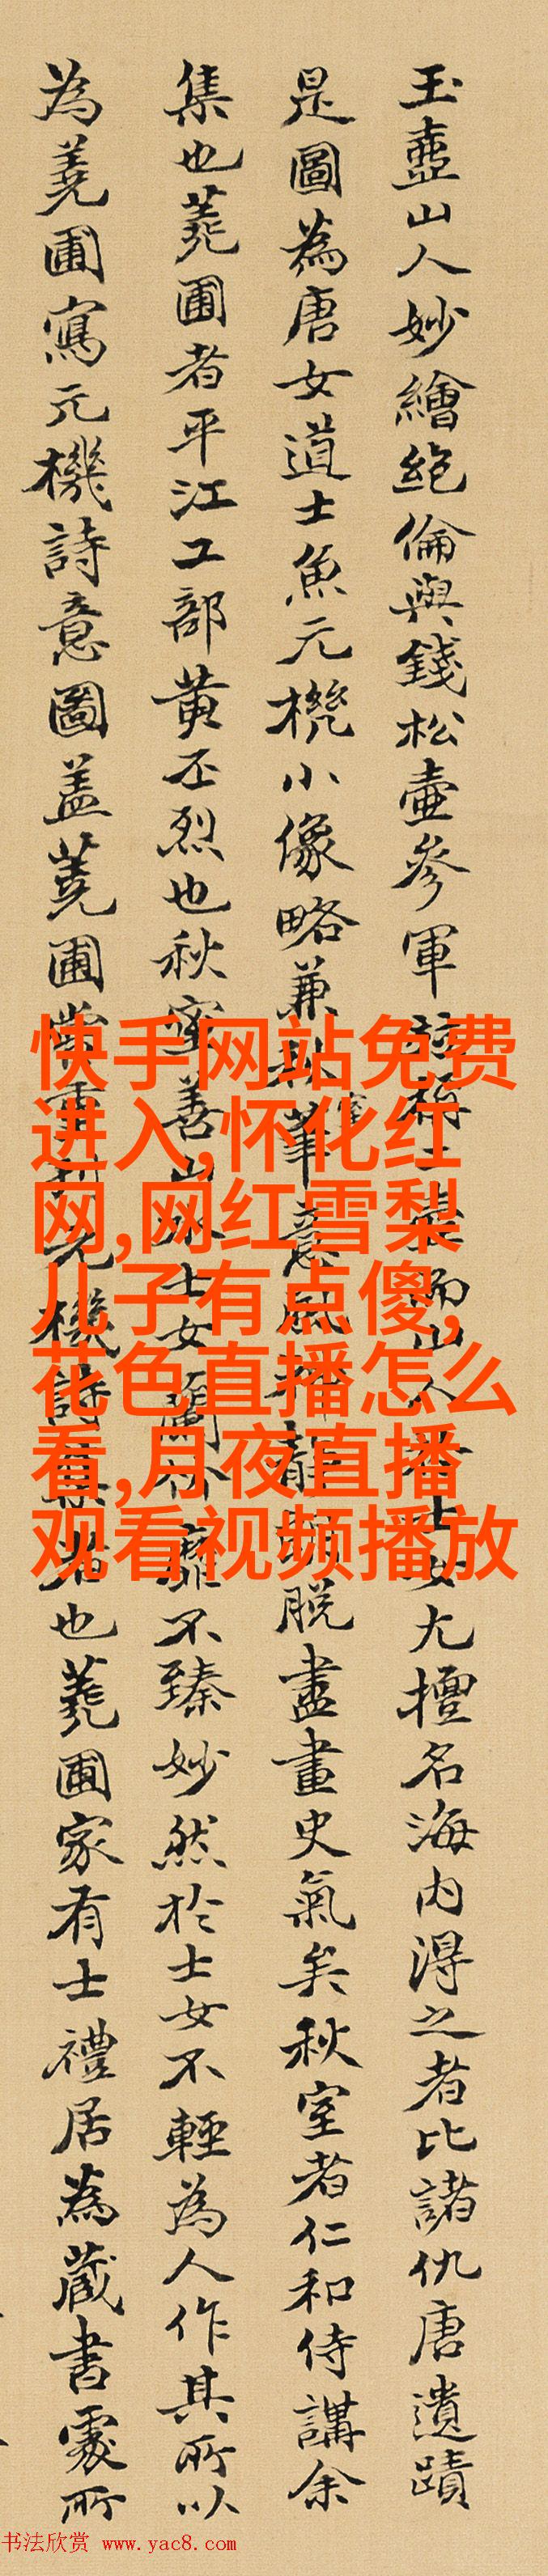 玉壺山人妙繪絶倫與錢松壺參軍稱二壺而山人士女尤擅名海内得之者比諸仇唐遺蹟
是圖為唐女道士魚元機小像略兼秋室筆意風脱盡畫史氣矣秋室者仁和侍講余
集也蕘圃者平江工部黄丕烈也秋室善山水士女蘭竹靡不臻妙然於士女不輕為人作其所以
為蕘圃寫元機詩意圖蓋蕘圃嘗重刊元機詩集者也蕘圃家有士禮居為藏書處所
快手网站免费
进入,怀化红
网,网红雪梨
儿子有点傻,
花色直播怎么
看,月夜直播
观看视频播放
书法欣赏 www.yac8.com